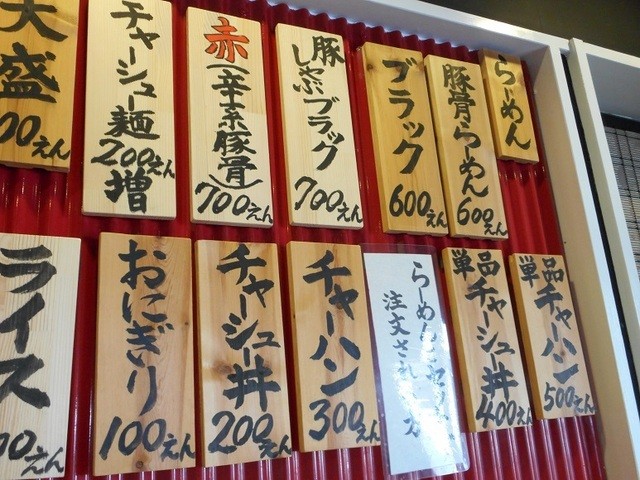 らーめん
豚骨らーめん
600えん
ブラック
600えん
豚しゃぶブラック
700えん
赤(辛十糸豚骨)
700えん
チャーシュー麺
200えん
増
大盛
00えん
単品
チャーハン
500えん
単品
チャーシュー丼
400えん
らーめん
注文され
チャーハン
300えん
チャーシュー丼
200えん
おにぎり
100えん
ライス
00えん